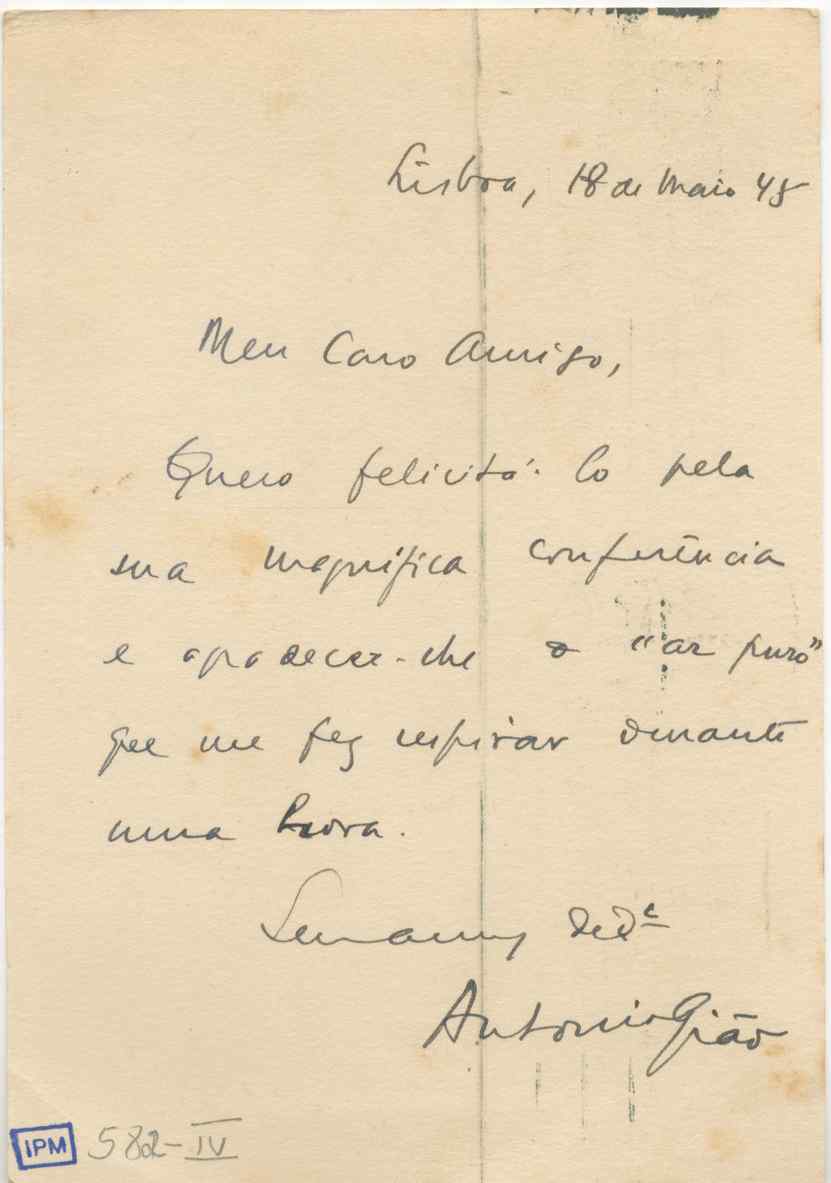 Lisboa, 18 de Maio 45
Meu Caro Amigo,
Quero felicitá-lo pela
sua magnífica conferência
e agradecer-lhe o "ar puro"
que me fez respirar durante
uma hora.
Seu amº dedº
Antonio Gião
IPM 582-IV